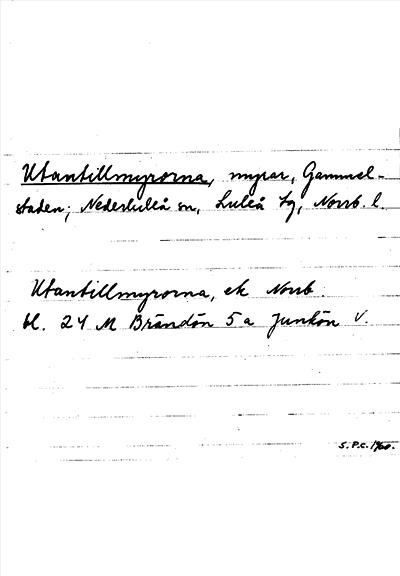 Utantillmyrorna, myrar, Gammel-
staden; Nederluleå sn, Luleå tg, Norrb. l.
Utantillmyrorna, ek Norrb.
bl. 24 M Brändön 5a Junkön V.
S.P.C. 1960.